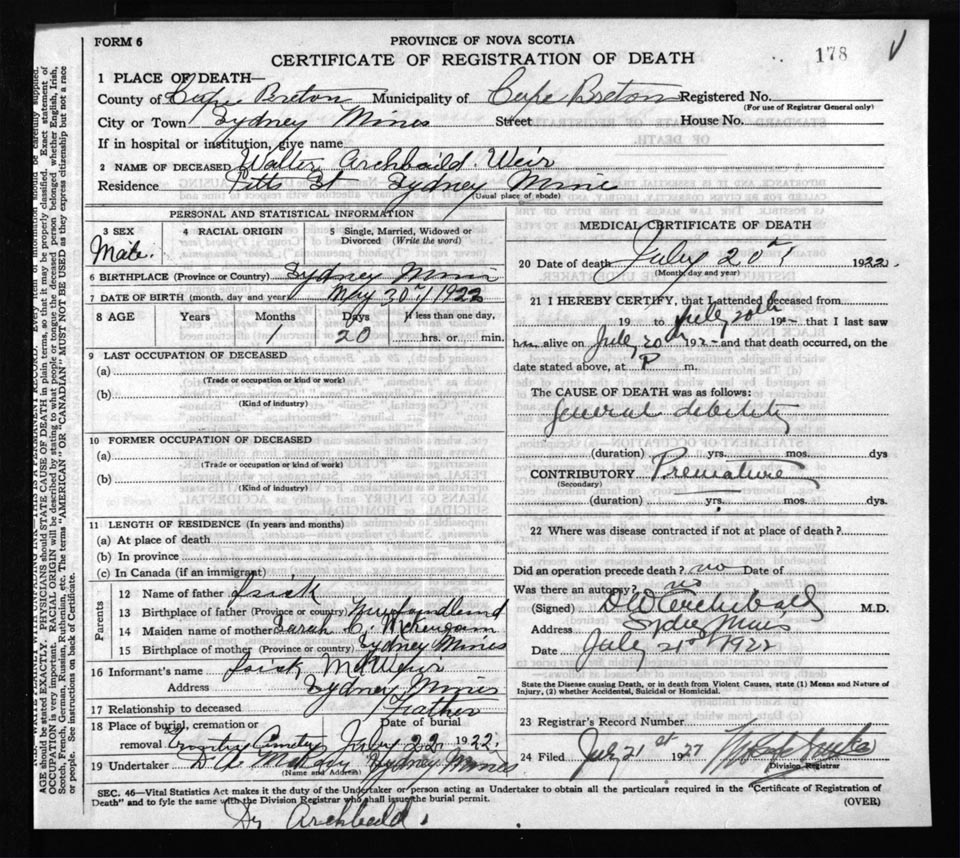 FORM 6
PROVINCE OF NOVA SCOTIA
CERTIFICATE OF REGISTRATION OF DEATH
178
1 PLACE OF DEATH—
County of Cape Breton Municipality of Cape Breton Registered No.
(For use of Registrar General only)
City or Town Sydney Mines Street House No.
If in hospital or institution, give name
2 NAME OF DECEASED Walter Archbaild Weir
Residence Pitts St Sydney Mines
(Usual place of abode)
PERSONAL AND STATISTICAL INFORMATION
3 SEX
Male.
4 RACIAL ORIGIN
5 Single, Married, Widowed or Divorced (Write the word)
6 BIRTHPLACE (Province or Country) Sydney Mines
7 DATE OF BIRTH (month, day and year) May 30th 1922
8 AGE Years Months Days If less than one day,
1 20 hrs. or min.
9 LAST OCCUPATION OF DECEASED
(a)
(Trade or occupation or kind of work)
(b)
(Kind of industry)
10 FORMER OCCUPATION OF DECEASED
(a)
(Trade or occupation or kind of work)
(b)
(Kind of industry)
11 LENGTH OF RESIDENCE (In years and months)
(a) At place of death
(b) In province
(c) In Canada (if an immigrant)
Parents
12 Name of father Isick
13 Birthplace of father (Province or country) Newfoundland
14 Maiden name of mother Sarah C.
15 Birthplace of mother (Province or country) Sydney Mines
16 Informant's name Isick
Address Sydney Mines
17 Relationship to deceased Father
18 Place of burial, cremation or removal Cemetry
Date of burial July 22 1922.
19 Undertaker D A McKay Sydney Mines
(Name and Address)
MEDICAL CERTIFICATE OF DEATH
20 Date of death July 20th 1922.
(Month, day and year)
21 I HEREBY CERTIFY, that I attended deceased from
19 to July 20th 192- that I last saw
h alive on July 20th 192- and that death occurred, on the
date stated above, at P m.
The CAUSE OF DEATH was as follows:
General debility
(duration) yrs. mos. dys
CONTRIBUTORY Premature
(Secondary)
(duration) yrs. mos. dys.
22 Where was disease contracted if not at place of death?
Did an operation precede death? no Date of
Was there an autopsy? no
(Signed) D W Archibald M.D.
Address Sydney Mines
Date July 21st 1922
State the Disease causing Death, or in death from Violent Causes, state (1) Means and Nature of Injury, (2) whether Accidental, Suicidal or Homicidal.
23 Registrar's Record Number
24 Filed July 21st 1927
Division Registrar
SEC. 46—Vital Statistics Act makes it the duty of the Undertaker or person acting as Undertaker to obtain all the particulars required in the "Certificate of Registration of
Death" and to fyle the same with the Division Registrar who shall issue the burial permit.
(OVER)
Dr Archbald.
AGE should be stated EXACTLY. PHYSICIANS should STATE CAUSE OF DEATH in plain terms, so that it may be properly classified. Exact statement of
OCCUPATION is very important. RACIAL ORIGIN will be described by stating to what people or tongue the deceased person belonged whether English, Irish,
Scotch, French, German, Russian, Ruthenian, etc. The terms "AMERICAN" OR "CANADIAN" MUST NOT BE USED as they express citizenship but not a race
or people. See instructions on back of Certificate.